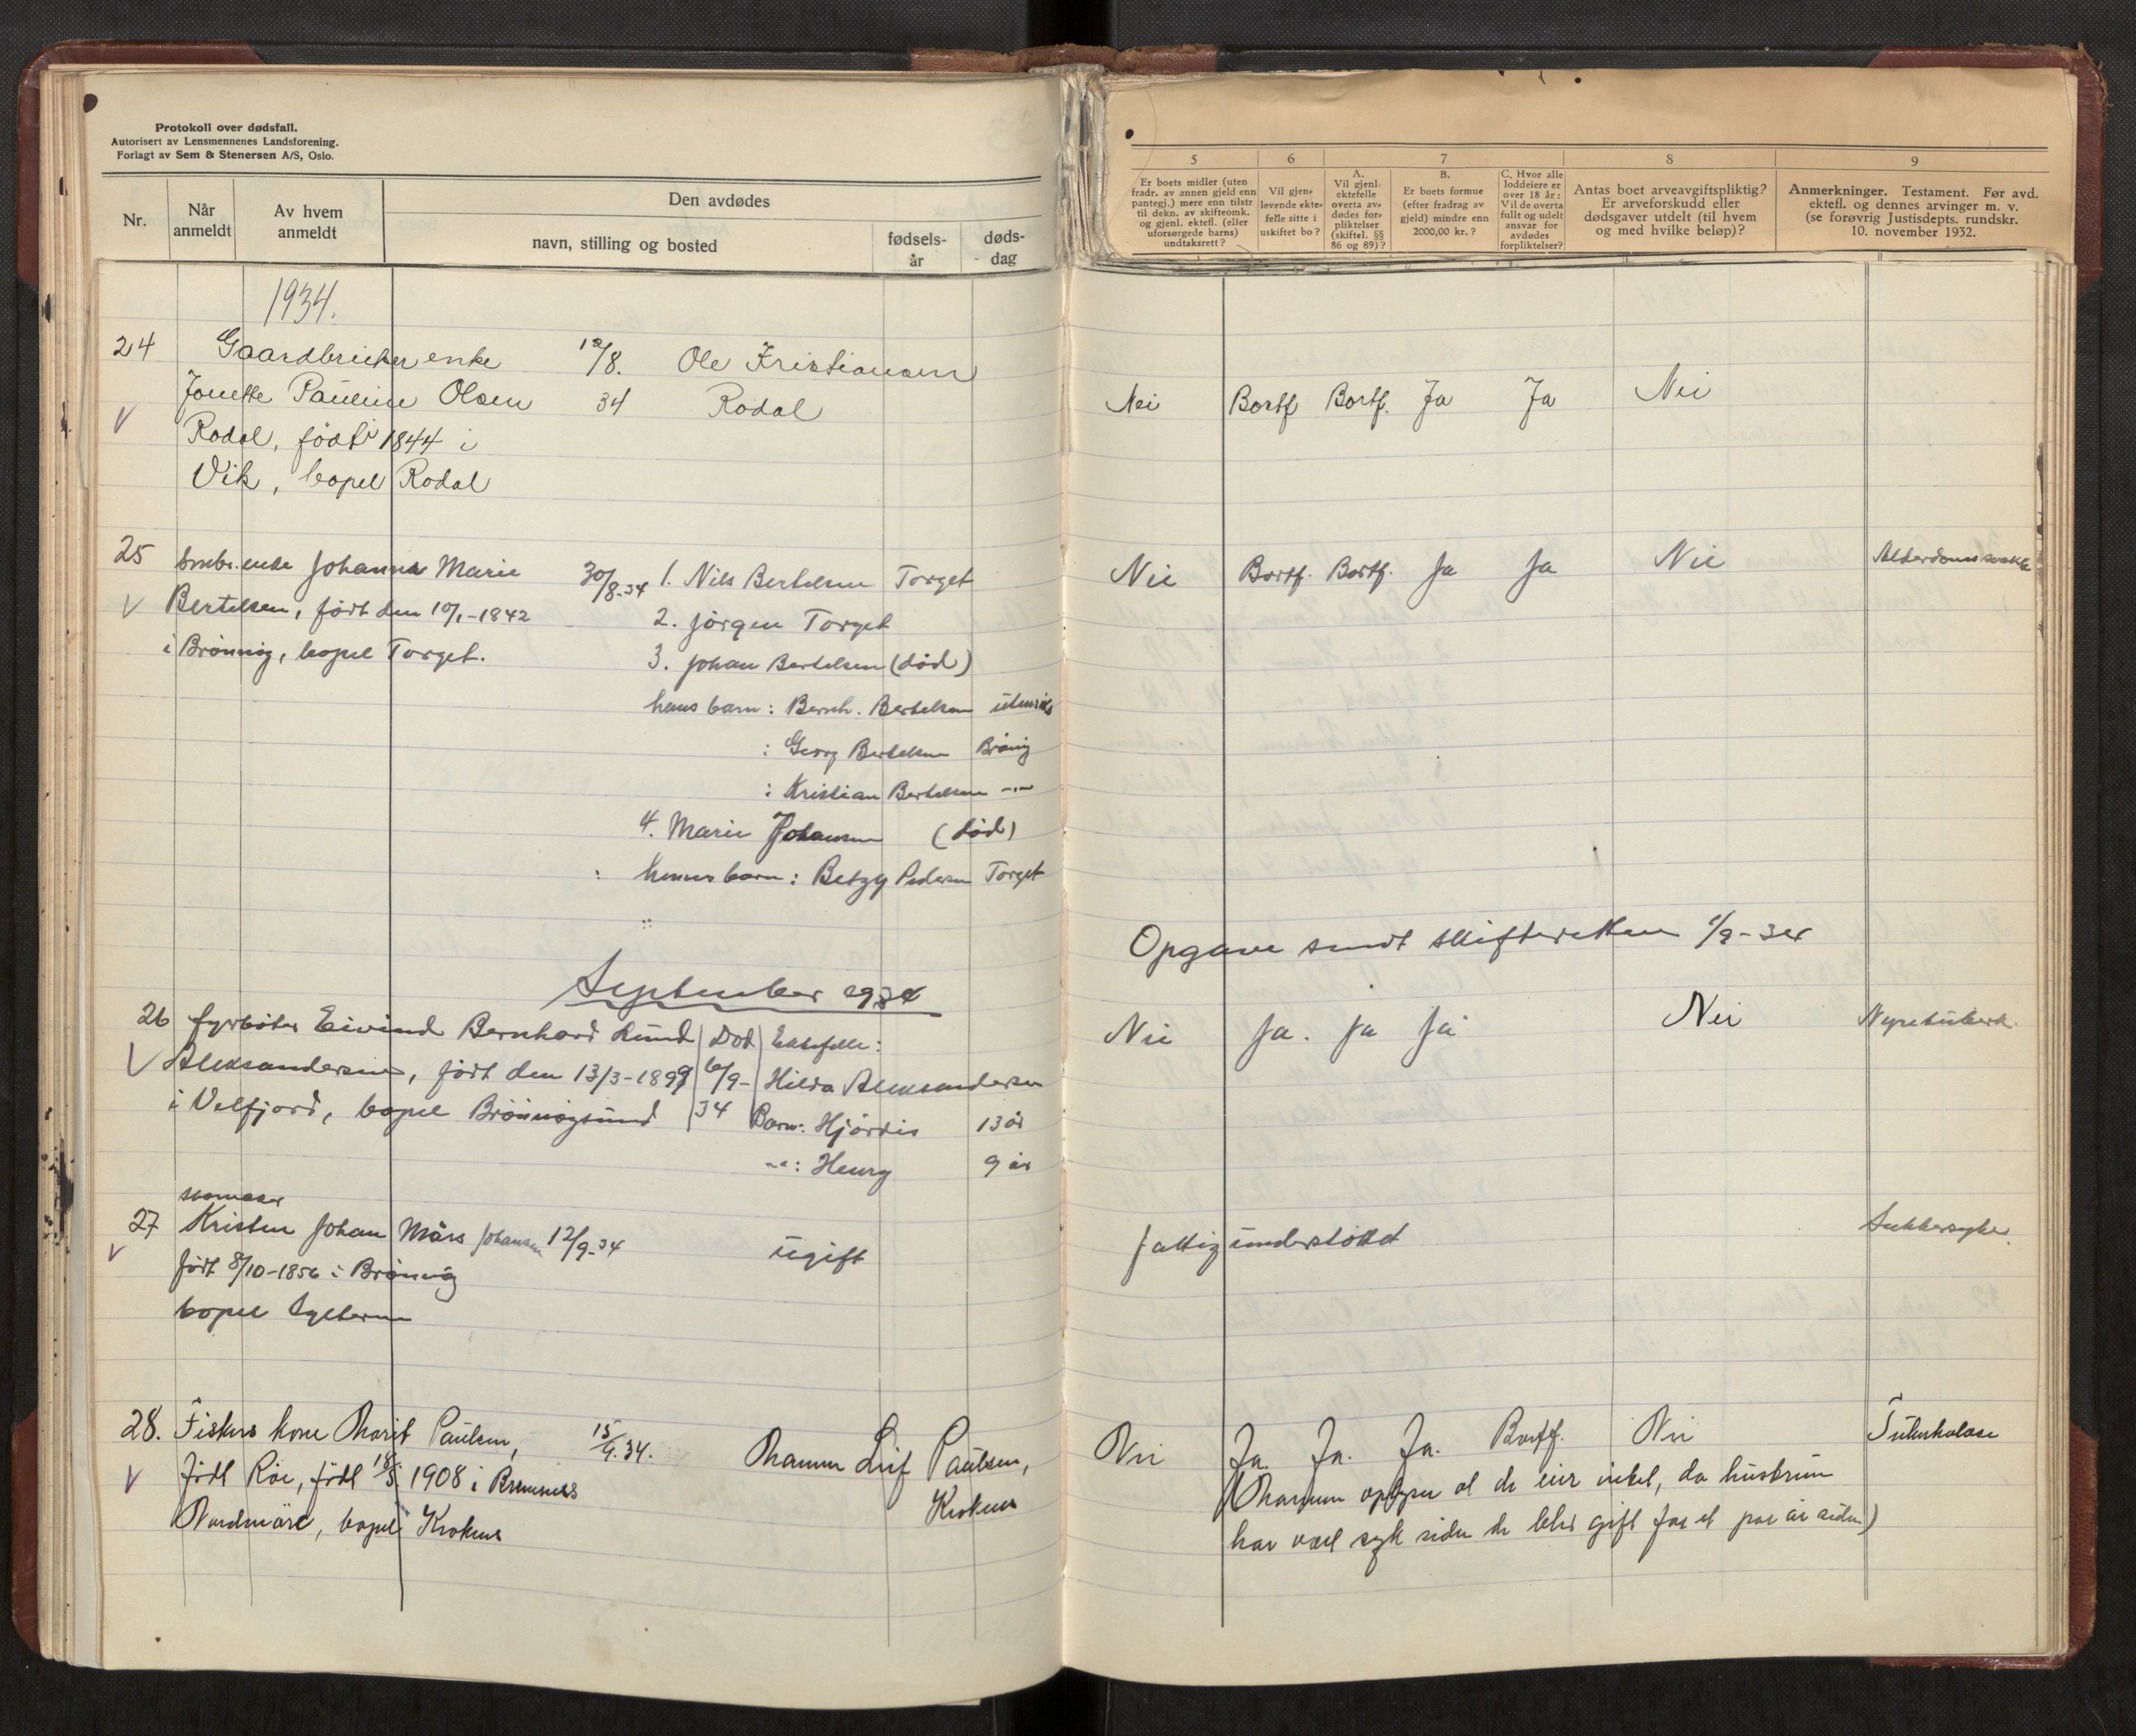 Protokoll over dødsfall.
Autorisert av Lensmennenes Landsforening.
Forlagt av Sem & Stenersen A/S, Oslo.
Nr.
Når anmeldt
Av hvem anmeldt
Den avdødes
navn, stilling og bosted
fødsels-år
døds-dag
5
6
7
8
9
Er boets midler (uten
fradr. av annen gjeld enn
pantegj.) mere enn tilstr
til dekn. av skifteomk.
og gjenl. ektef. (eller
uforsørgede barns)
undtaksrett?
Vil gjen-
levende ekte-
felle sitte i
uskiftet bo?
A.
Vil gjenl.
ektefelle
overta av-
dødes for-
pliktelser
(skiftel. §§
86 og 89)?
B.
Er boets formue
(efter fradrag av
gjeld) mindre enn
2000,00 kr.?
C. Hvor alle
loddeiere er
over 18 år:
Vil de overta
fullt og udelt
ansvar for
avdødes
forpliktelser?
Antas boet arveavgiftspliktig?
Er arveforskudd eller
dødsgaver utdelt (til hvem
og med hvilke beløp)?
Anmerkninger. Testament. Før avd.
ektefl. og dennes arvinger m. v.
(se forøvrig Justisdepts. rundskr.
10. november 1932.
1934.
24 Gaardbruker enke /8. Ole Kristiansen
Pauline Olsen 34 Rodal
Rodal, født i 1844 i
Vik, bopel Rodal
Nei Bortf. Bortf. Ja Ja Nei
25 enke Johanna Marie 30/8-34 1. Nils Bertelsen Torget
Bertelsen, født den 10/1-1842 2. Jörgen Torget
i Brönnöy, bopel Torget. 3. Johan Bertelsen (död)
hans barn: Bernh. Bertelsen utenriks
: Georg Bertelsen Brönöy
: Kristian Bertelsen -"-
4. Marie Johansen (död)
hennes barn: Betzy Pedersen Torget
Nei Bortf. Bortf. Ja Ja Nei Alderdomssvakhet
Opgave sendt skifteretten 1/9-34
September 1934
26 fyrböter Eivind Bernhard Lund Död Ektefelle:
Aleksandersen, født den 13/3-1899 6/9- Hilda Aleksandersen
i Velfjord, bopel Brönnöysund 34 Barn: Hjördis 13 år
-"-: Henry 9 år
Nei Ja. Ja Ja Nei Nyretuberk.
skomaker
27 Kristen Johan Mårs Johansen 12/9-34 ugift
født 8/10-1856 i Brönnöy
bopel
fattigunderstöttet Sukkersyke.
28. Fiskers kone Marit Paulsen, 15/9.34. Mannen Leif Paulsen,
född Röe, född 18/5 1908 i Bremsnes Kroknes
Nordmöre, bopel Kroknes
Nei Ja. Ja. Ja. Bortf. Nei Tuberkulose
(Mannen opgir at de eier intet, da hustruen
har vært syk siden de blev gift for et par år siden)